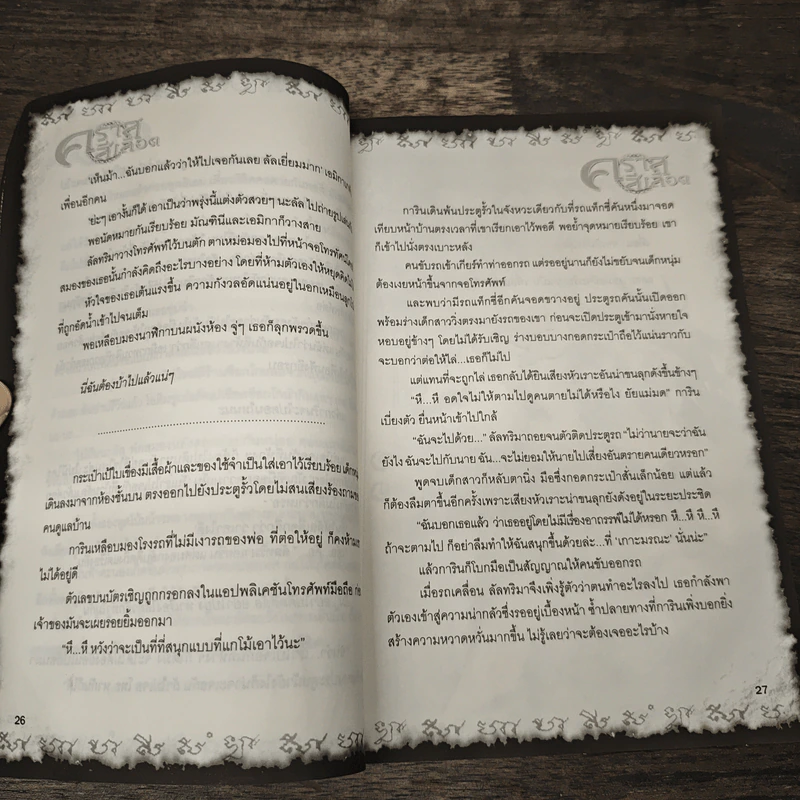 คราสสีเลือด
'เห็นม้า...ฉันบอกแล้วว่าให้ไปเจอกันเลย ลัลเยี่ยมมาก' เอมิกา
เพื่อนอีกคน
'ย่ะๆ เอางั้นก็ได้ เอาเป็นว่าพรุ่งนี้แต่งตัวสวยๆ นะลัล ไปถ่ายรูป
พอนัดหมายกันเรียบร้อย มัณฑินีและเอมิกาก็วางสาย
ลัลทริมาวางโทรศัพท์ไว้บนตัก ตาเหม่อมองไปที่หน้าจอโทรทัศน์
สมองของเธอนั้นกำลังคิดถึงอะไรบางอย่าง โดยที่ห้ามตัวเองให้หยุดคิด
หัวใจของเธอเต้นแรงขึ้น ความกังวลอัดแน่นอยู่ในอกเหมือน
ที่ถูกอัดน้ำเข้าไปจนเต็ม
พอเหลือบมองนาฬิกาบนผนังห้อง จู่ๆ เธอก็ลุกพรวดขึ้น
นี่ฉันต้องบ้าไปแล้วแน่ๆ
กระเป๋าเป้ใบเขื่องมีเสื้อผ้าและของใช้จำเป็นใส่เอาไว้เรียบร้อย
เดินลงมาจากห้องชั้นบน ตรงออกไปยังประตูรั้วโดยไม่สนเสียงร้องถาม
คนดูแลบ้าน
การินเหลือบมองโรงรถที่ไม่มีเงารถของพ่อ ที่ต่อให้อยู่ ก็คงห้าม
ไม่ได้อยู่ดี
ตัวเลขบนบัตรเชิญถูกกรอกลงในแอปพลิเคชันโทรศัพท์มือถือ ก่อน
เจ้าของมันจะเผยรอยยิ้มออกมา
"หึ...หึ หวังว่าจะเป็นที่ที่สนุกแบบที่แกโม้เอาไว้นะ"
26
คราสสีเลือด
การินเดินพ้นประตูรั้วในจังหวะเดียวกับที่รถแท็กซี่คันหนึ่งมาจอด
เทียบหน้าบ้านตรงเวลาที่เขาเรียกเอาไว้พอดี พอย้ำจุดหมายเรียบร้อย เขา
ก็เข้าไปนั่งตรงเบาะหลัง
คนขับรถเข้าเกียร์ทำท่าออกรถ แต่รออยู่นานก็ยังไม่ขยับจนเด็กหนุ่ม
ต้องเงยหน้าขึ้นจากจอโทรศัพท์
และพบว่ามีรถแท็กซี่อีกคันจอดขวางอยู่ ประตูรถคันนั้นเปิดออก
พร้อมร่างเด็กสาววิ่งตรงมายังรถของเขา ก่อนจะเปิดประตูเข้ามานั่งหายใจ
หอบอยู่ข้างๆ โดยไม่ได้รับเชิญ ร่างบอบบางกอดกระเป๋าถือไว้แน่นราวกับ
จะบอกว่าต่อให้ไล่...เธอก็ไม่ไป
แต่แทนที่จะถูกไล่ เธอกลับได้ยินเสียงหัวเราะอันน่าขนลุกดังขึ้นข้างๆ
"หึ...หึ อดใจไม่ให้ตามไปดูคนตายไม่ได้หรือไง ยัยแม่มด" การิน
เบี่ยงตัว ยื่นหน้าเข้าไปใกล้
"ฉันจะไปด้วย..." ลัลทริมาถอยจนตัวติดประตูรถ "ไม่ว่านายจะว่าฉัน
ยังไง ฉันจะไปกับนาย ฉัน...จะไม่ยอมให้นายไปเสี่ยงอันตรายคนเดียวหรอก"
พูดจบเด็กสาวก็หลับตานิ่ง มือซึ่งกอดกระเป๋าสั่นเล็กน้อย แต่แล้ว
ก็ต้องลืมตาขึ้นอีกครั้งเพราะเสียงหัวเราะน่าขนลุกยังดังอยู่ในระยะประชิด
"ฉันบอกเธอแล้ว ว่าเธออยู่โดยไม่มีเรื่องอาถรรพ์ไม่ได้หรอก หึ...หึ...หึ
ถ้าจะตามไป ก็อย่าลืมทำให้ฉันสนุกขึ้นด้วยล่ะ...ที่ 'เกาะมรณะ' นั่นน่ะ"
แล้วการินก็โบกมือเป็นสัญญาณให้คนขับออกรถ
เมื่อรถเคลื่อน ลัลทริมาจึงเพิ่งรู้ตัวว่าตนทำอะไรลงไป เธอกำลังพา
ตัวเองเข้าสู่ความน่ากลัวซึ่งรออยู่เบื้องหน้า ซ้ำปลายทางที่การินเพิ่งบอกยิ่ง
สร้างความหวาดหวั่นมากขึ้น ไม่รู้เลยว่าจะต้องเจออะไรบ้าง
27